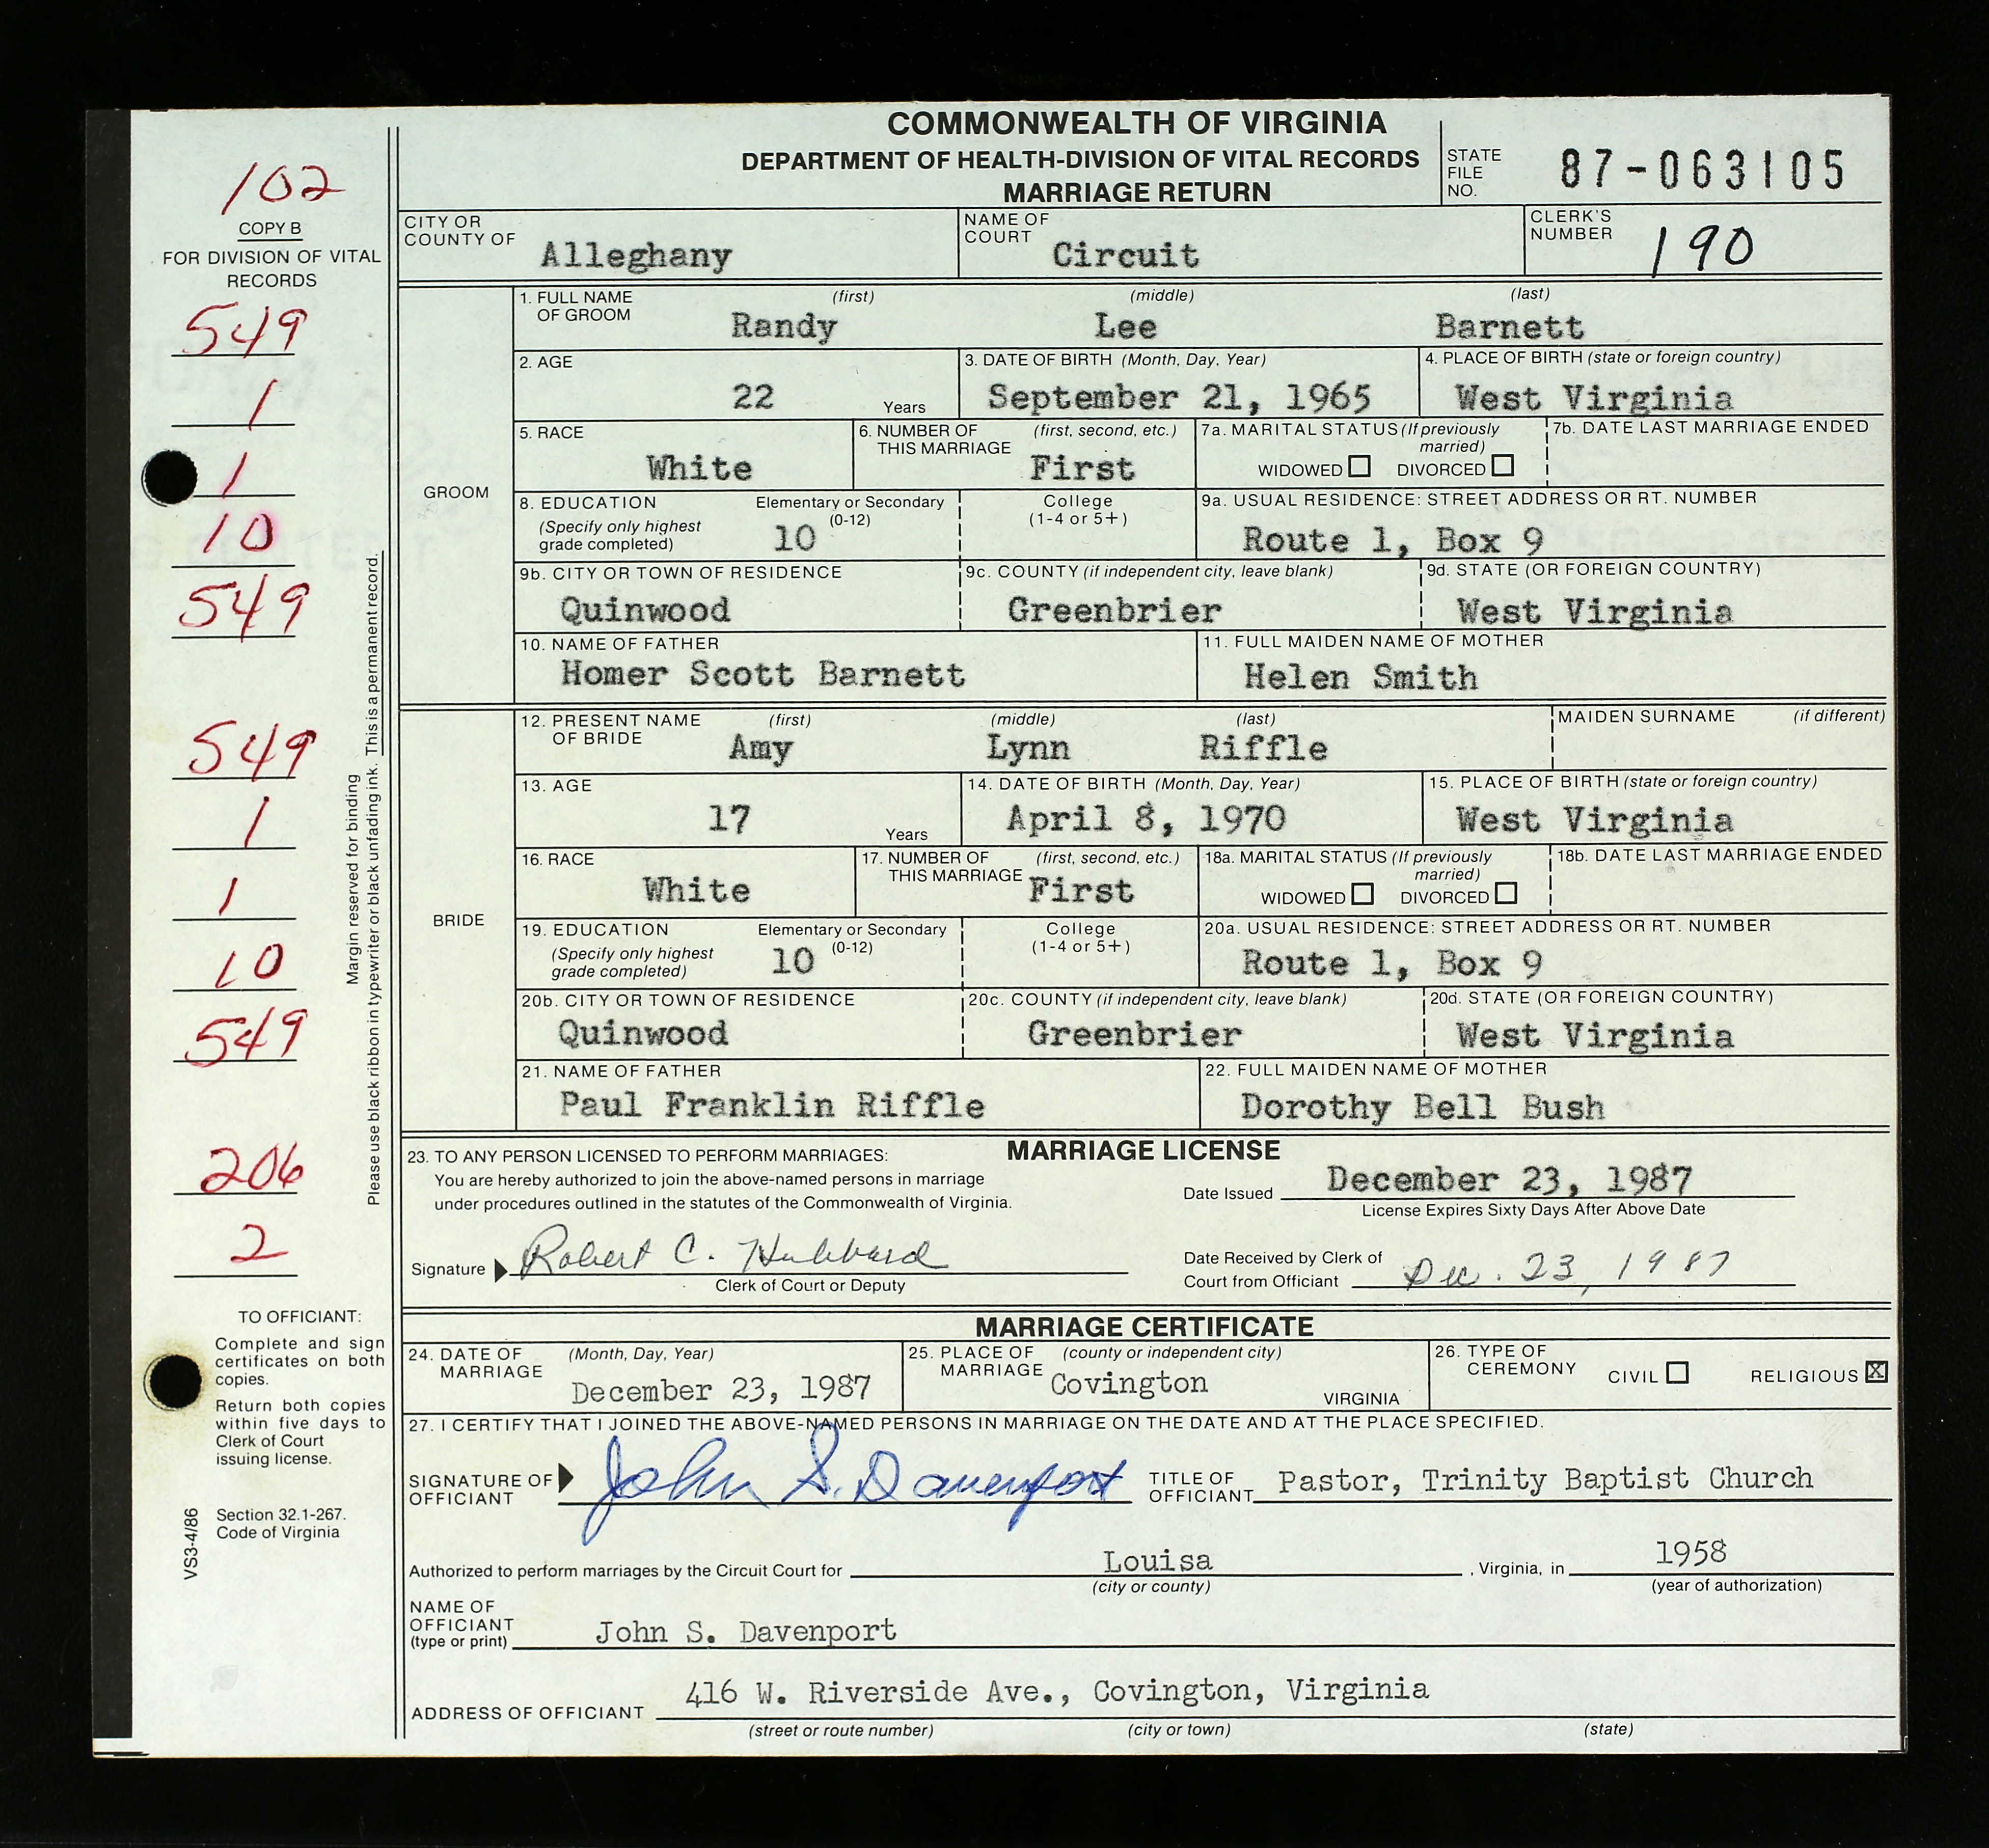 COMMONWEALTH OF VIRGINIA
DEPARTMENT OF HEALTH-DIVISION OF VITAL RECORDS
MARRIAGE RETURN
STATE FILE NO. 87-063105
102
COPY B
FOR DIVISION OF VITAL RECORDS
549
1
1
10
549
549
1
1
10
549
206
2
Margin reserved for binding
Please use black ribbon in typewriter or black unfading ink. This is a permanent record.
TO OFFICIANT:
Complete and sign
certificates on both
copies.
Return both copies
within five days to
Clerk of Court
issuing license.
Section 32.1-267.
Code of Virginia
VS3-4/86
CITY OR COUNTY OF Alleghany
NAME OF COURT Circuit
CLERK'S NUMBER 190
GROOM
1. FULL NAME OF GROOM (first) (middle) (last)
Randy Lee Barnett
2. AGE 22 Years
3. DATE OF BIRTH (Month, Day, Year) September 21, 1965
4. PLACE OF BIRTH (state or foreign country) West Virginia
5. RACE White
6. NUMBER OF THIS MARRIAGE (first, second, etc.) First
7a. MARITAL STATUS (If previously married) WIDOWED DIVORCED
7b. DATE LAST MARRIAGE ENDED
8. EDUCATION (Specify only highest grade completed) Elementary or Secondary (0-12) 10
College (1-4 or 5+)
9a. USUAL RESIDENCE: STREET ADDRESS OR RT. NUMBER Route 1, Box 9
9b. CITY OR TOWN OF RESIDENCE Quinwood
9c. COUNTY (if independent city, leave blank) Greenbrier
9d. STATE (OR FOREIGN COUNTRY) West Virginia
10. NAME OF FATHER Homer Scott Barnett
11. FULL MAIDEN NAME OF MOTHER Helen Smith
BRIDE
12. PRESENT NAME OF BRIDE (first) (middle) (last)
Amy Lynn Riffle
MAIDEN SURNAME (if different)
13. AGE 17 Years
14. DATE OF BIRTH (Month, Day, Year) April 8, 1970
15. PLACE OF BIRTH (state or foreign country) West Virginia
16. RACE White
17. NUMBER OF THIS MARRIAGE (first, second, etc.) First
18a. MARITAL STATUS (If previously married) WIDOWED DIVORCED
18b. DATE LAST MARRIAGE ENDED
19. EDUCATION (Specify only highest grade completed) Elementary or Secondary (0-12) 10
College (1-4 or 5+)
20a. USUAL RESIDENCE: STREET ADDRESS OR RT. NUMBER Route 1, Box 9
20b. CITY OR TOWN OF RESIDENCE Quinwood
20c. COUNTY (if independent city, leave blank) Greenbrier
20d. STATE (OR FOREIGN COUNTRY) West Virginia
21. NAME OF FATHER Paul Franklin Riffle
22. FULL MAIDEN NAME OF MOTHER Dorothy Bell Bush
MARRIAGE LICENSE
23. TO ANY PERSON LICENSED TO PERFORM MARRIAGES:
You are hereby authorized to join the above-named persons in marriage
under procedures outlined in the statutes of the Commonwealth of Virginia.
Date Issued December 23, 1987
License Expires Sixty Days After Above Date
Signature Robert C. Hubbard
Clerk of Court or Deputy
Date Received by Clerk of
Court from Officiant Dec. 23, 1987
MARRIAGE CERTIFICATE
24. DATE OF MARRIAGE (Month, Day, Year) December 23, 1987
25. PLACE OF MARRIAGE (county or independent city) Covington VIRGINIA
26. TYPE OF CEREMONY CIVIL RELIGIOUS X
27. I CERTIFY THAT I JOINED THE ABOVE-NAMED PERSONS IN MARRIAGE ON THE DATE AND AT THE PLACE SPECIFIED.
SIGNATURE OF OFFICIANT John S. Davenport
TITLE OF OFFICIANT Pastor, Trinity Baptist Church
Authorized to perform marriages by the Circuit Court for Louisa , Virginia, in 1958
(city or county) (year of authorization)
NAME OF OFFICIANT (type or print) John S. Davenport
ADDRESS OF OFFICIANT 416 W. Riverside Ave., Covington, Virginia
(street or route number) (city or town) (state)